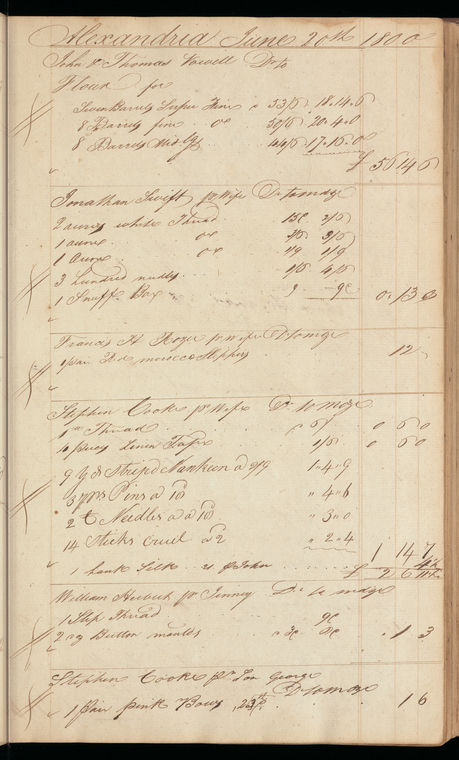 Alexandria June 20th 1800
John & Thomas Vowell Dr to
Flour for
Seven Barrels Super Fine @ 53/6 18.14.6
8 Barrels fine Do 50/6 20.4.0
8 Barrels Midlgs 44/6 17.16.0
£ 56 14 6
Jonathan Swift pr Wife Dr to mdze
2 ounces white Thread 15c 2/6
1 ounce Do 3/6 3/6
1 Ounce Do 1/9 1/9
3 hundred needles 1/6 4/6
1 Snuff Box 9 9c 0. 13 0
Francis H Rozer pr Wife Dr to mdze
1 pair Red morocco Slippers 12
Stephen Cooke pr Wife Dr to mdze
Thread 0 6 0
pieces Linen Tape 1/6 0 6 0
9 yds Striped Nankeen a 2/9 1 " 4 " 9
3 pprs Pins a 18 " 4 " 6
2 Needles a 18 " 3 " 0
14 Sticks Cruel a 2 " 2 " 4
1 14 7
1 hank Silk pr John
£ 2 6
William Herbert pr Jenney Dr to mdze
1 Skp Thread 9c
2 Button moulds " 3c 6c " 1 3
Stephen Cooke pr Son George
Dr to mdze
1 pair pink Bows 1 6